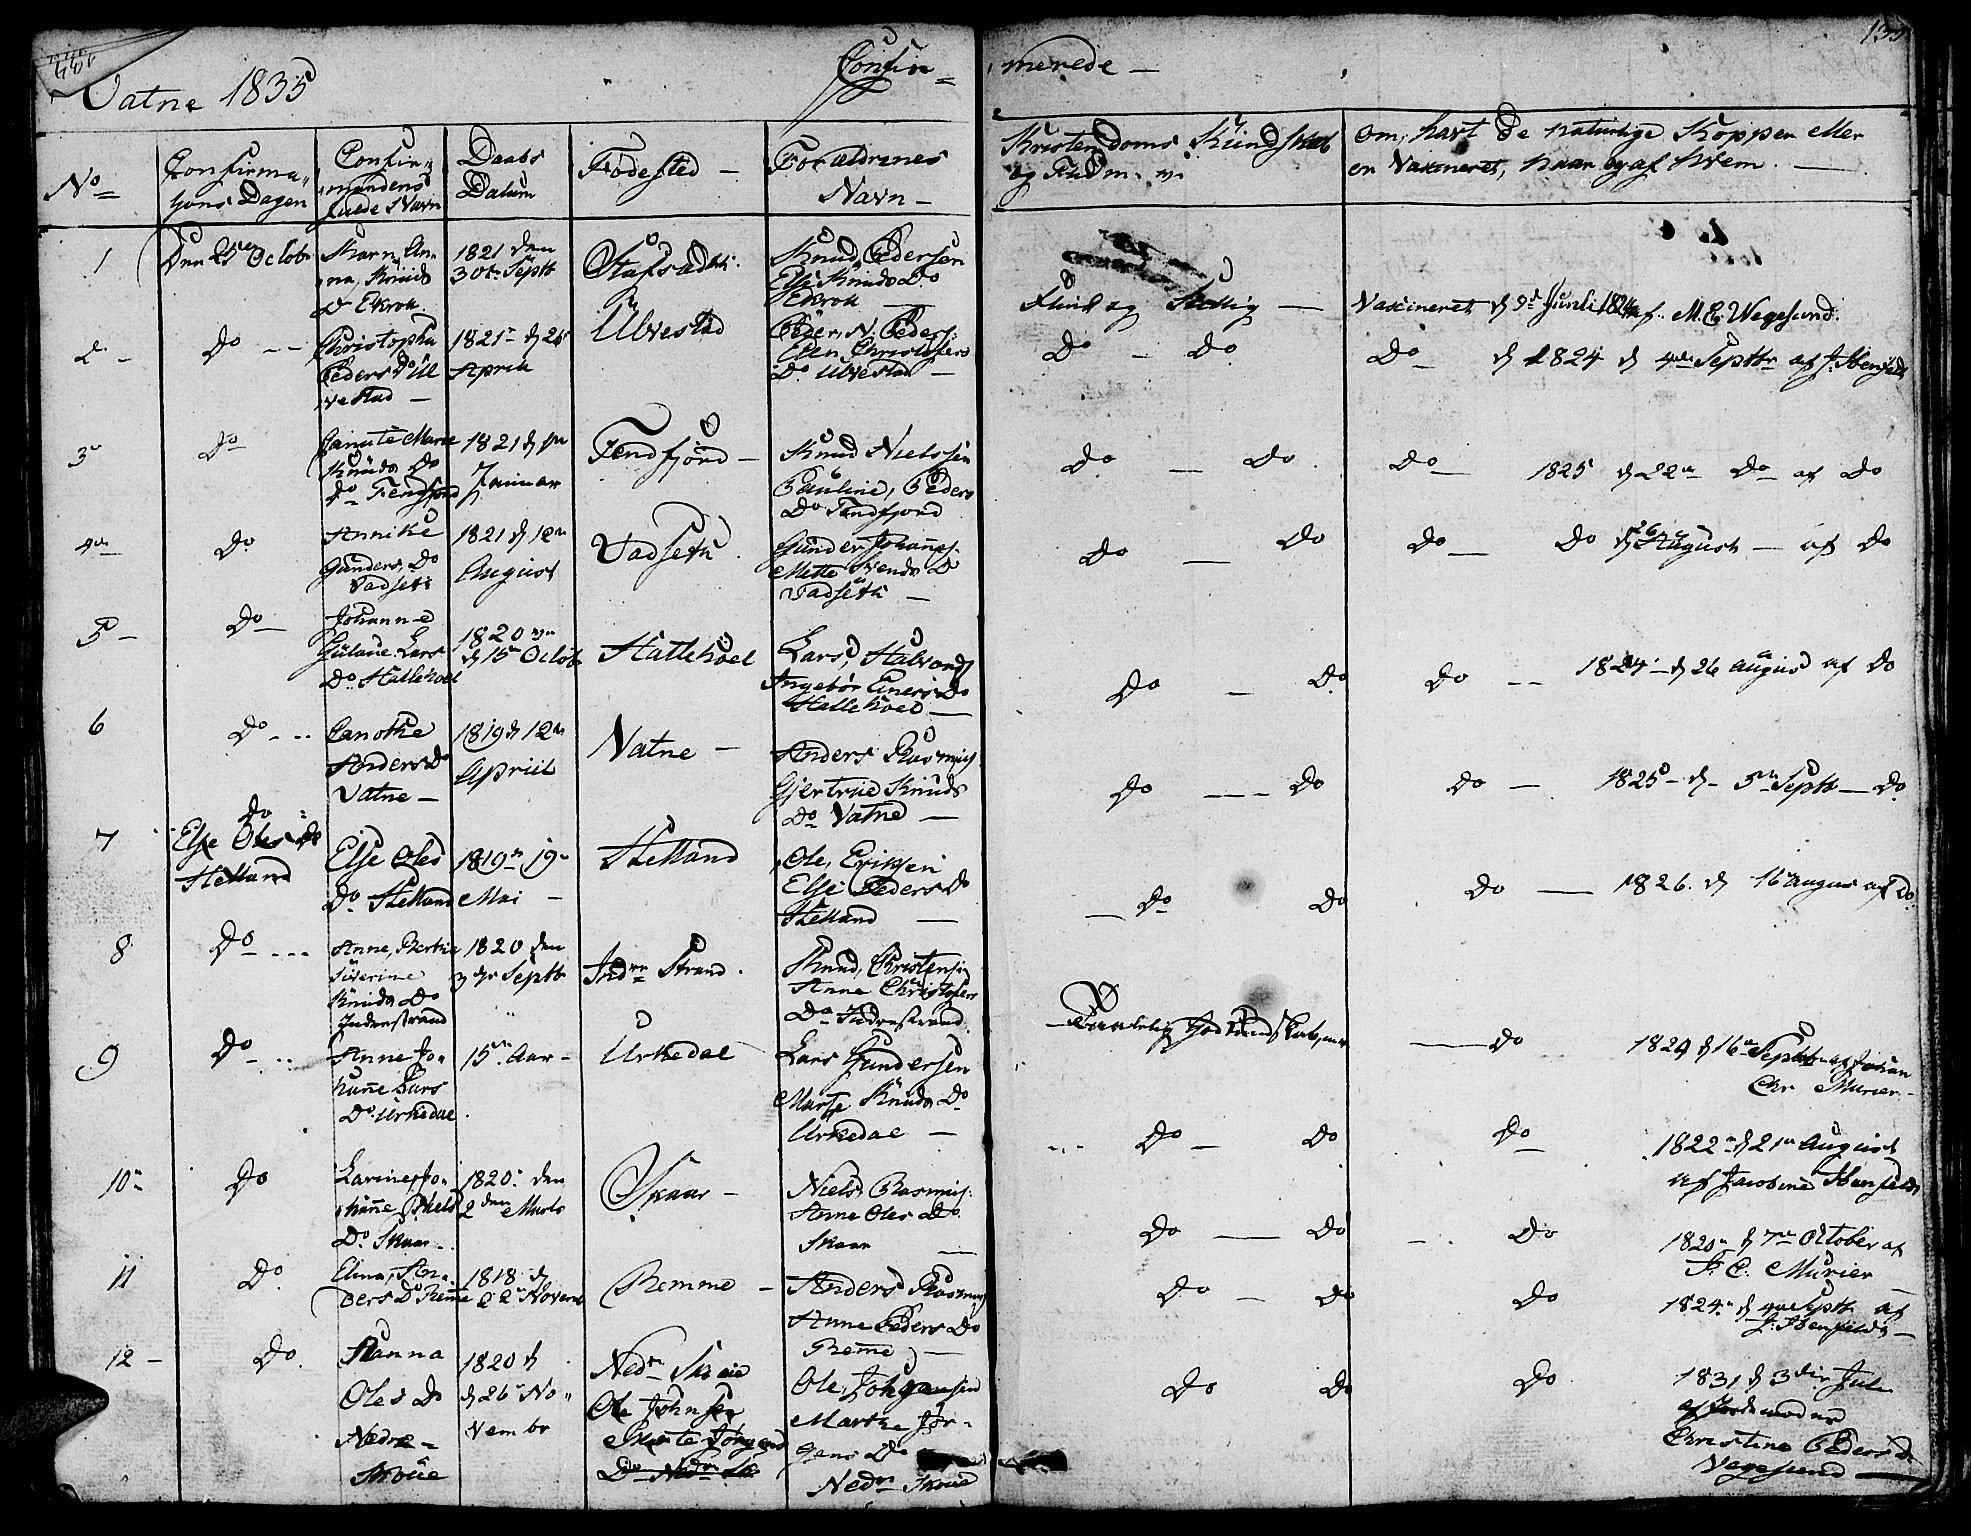 135
Vatne 1835 Confir=
merede —
No
Confirma„
tjons Dagen
Confir„
mandens
fulde Navn
Daabs
Datum
Fødested —
Forældrenes
Navn —
Kristendoms Kundskab
og Flid m. v.
Om, havt de naturlige Kopper eller
er Vaxineret, naar og af hvem. —
1
Den 25 Octobr
Karn, An„
na, Knuds
Dr Ekrok
1821 den
30te Septb
Knud, Pedersen
Else Knuds Do
Ekrok —
Flink og Skikkelig —
Vaxineret d 9de Junli 1824 af M. E. Wegesund.
2 —
Do — —
Christopha
Peders Do Ul
vestad —
1821 d 26
April
Ulvestad
Peder N. Peders:
Ellen Christofers
Do Ulvestad —
Do — Do
Do — d 1824 d 4de Septbr af J. Ibenfeldt
3
Do
Canute Marie
Knuds Do
Do Fendfjord
1821 d
Januar
Fendfjord —
Knud Nielssen
Pauline, Peders
Do Fendfjord
Do — Do.
Do — 1825 d 22 Do af Do
4
Do
Annike
Gunders, Do
Vadseth
1821 d 12
August
Vadseth
Gunder Johannes.
Mette Svends D
Vadseth —
Do — Do
Do — Do d 26 August — af Do
5 —
Do —
Johanne
Gulane Lars
Do Hallehoel
1820
d 15 Octob
Hallehoel
Lars, Halvords
Ingebor Einers Do
Hallehoel —
Do — Do
Do — — 1824 — d 26 August af Do
6
Do — —
Canothe
Anders Do
Vatne —
1819 d 12
Apriil
Vatne —
Anders Rasmus
Gjertrue Knuds
Do Vatne —
Do — — — Do
Do — 1825 — d — 5 Septb — Do
7
Do
Else Oles Do
Helland
Else Oles
Do Helland
1819 19
Mai —
Helland
Ole, Eriksen
Else Peders Do
Helland —
— Do Do
Do — 1826. d 16 August af Do
8
Do — — —
Anne, Berthe
Siverine
Knuds Do
Indrestrand
1820 den
3 die Septb
Indre Strand.
Knud, Christensen
Anne Christofers
Do Indrestrand
Taalelig god Kundskab,
— Do
1824 d 16 Septb af Johan
Chr Murier —
9
Do — ..
Anne Jo„
hane Lars
Do Urkedal
15 Aar —
Urkedal
Lars Gundersen
Marte Knuds Do
Urkedal —
Do — Do
Do
1822 d 21 August
af Jacobine Ibenfeldt
10
Do
Larine Jo„
hane Niels
Do Skaar —
1820. den
2den Marts
Skaar —
Niels Rasmus:
Anne Oles Do
Skaar —
Do — Do
Do
1820 d 7 October af
J. C. Murier —
11
Do
Elina, An„
ders D Remme
1818 d
2 Novemb
Remme —
Anders Rasmus
Anne Peders Do
Reme —
Do — Do
Do
1824. d 4de Septb af
J. Ibenfeldt —
12 —
Do.
Hanna
Oles Do
Nedre —
Skoue
1820 d
d 26 No„
vembr
Nedre Skoue
Ole Johnsen
Marte Jørgens
Do Nedre Sk
Ole, Johansen
Marthe Jør„
gens Do
Nedre Skoue
Do Do
Do
1831 d 3die Jul
af Jordemoder
Christine Peders D
Vegesund —